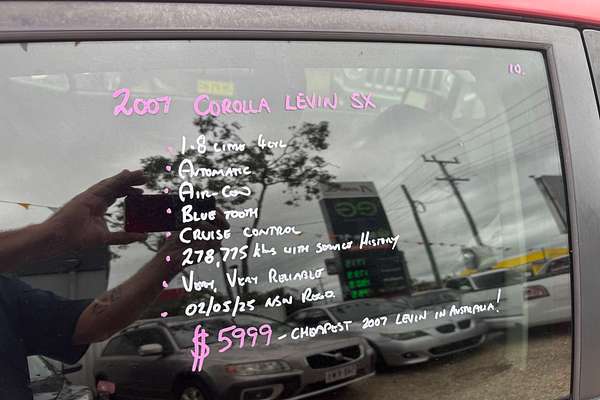 10.
2007 COROLLA LEVIN SX
• 1.8 LITRE 4CYL
• AUTOMATIC
• AIR-CON
• BLUE TOOTH
• CRUISE CONTROL
• 278,775 KMS WITH SERVICE HISTORY
• VERY, VERY RELIABLE
• 02/05/25 NSW REGO.
$5999 - CHEAPEST 2007 LEVIN IN AUSTRALIA!